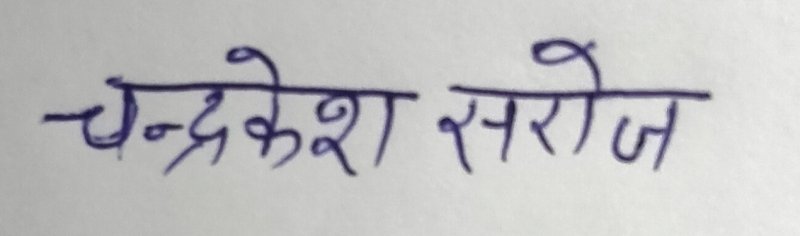 चन्द्रकेश सरोज